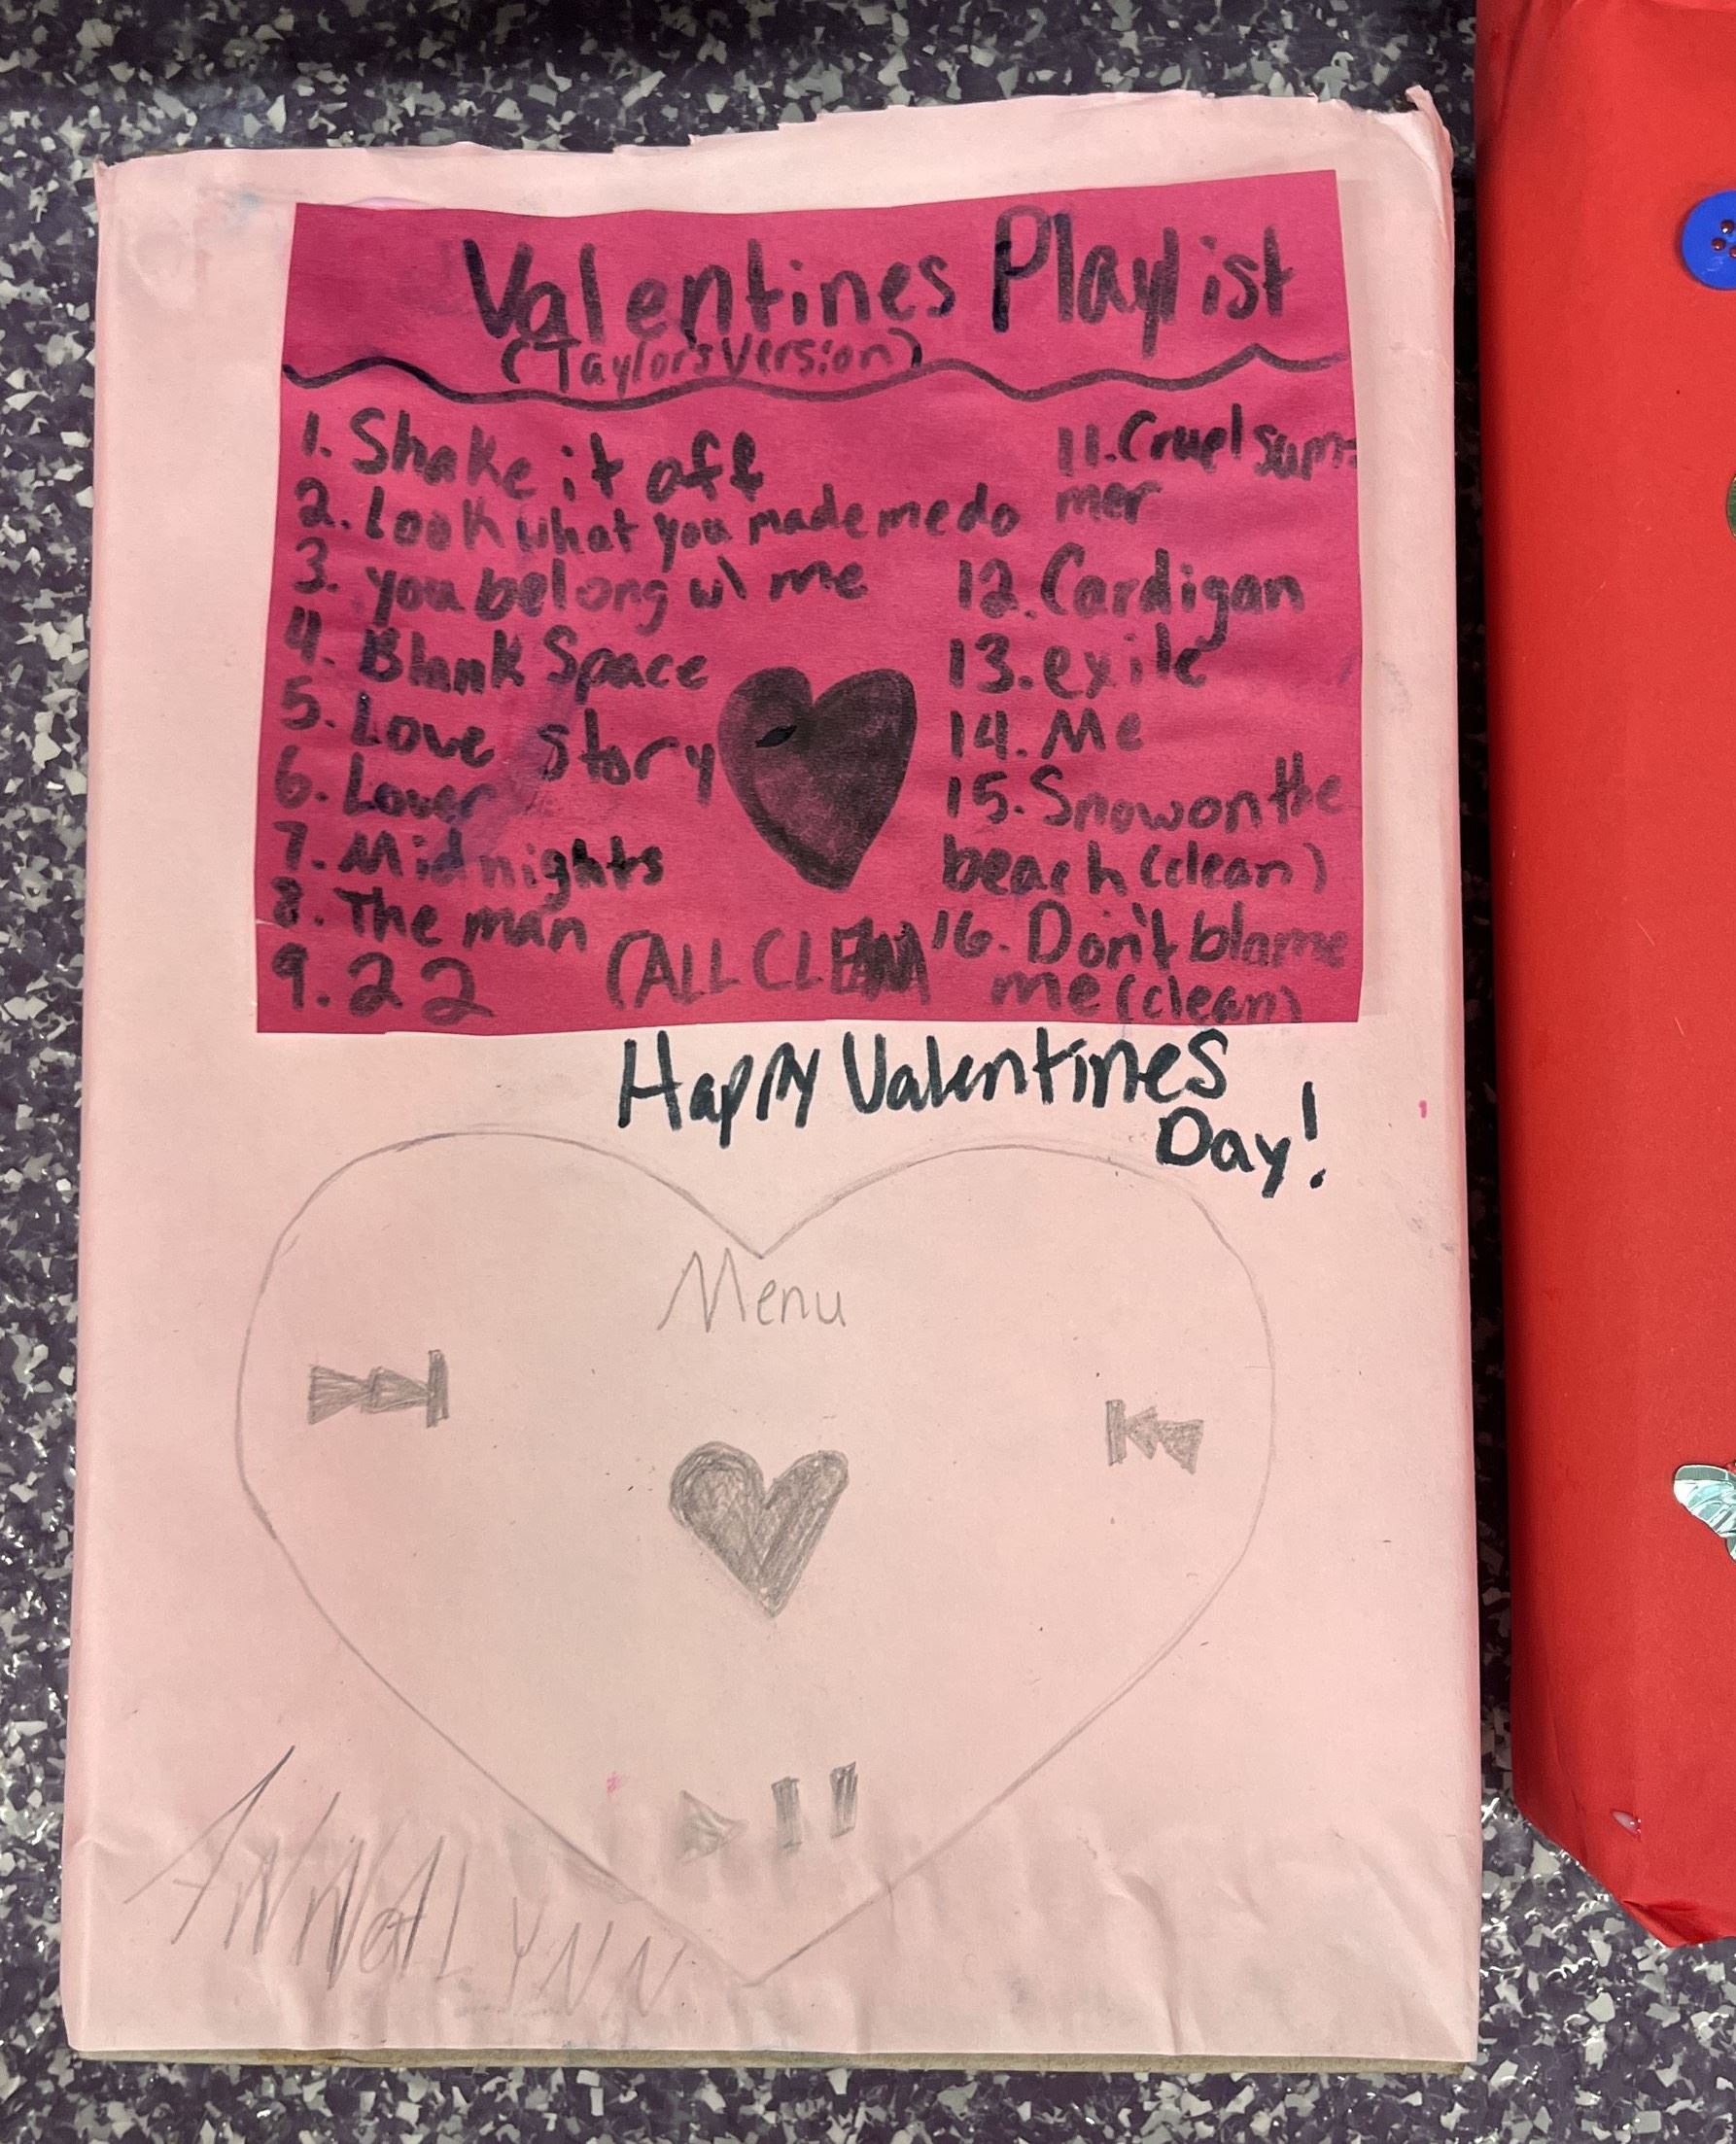 Valentines Playlist
(Taylor's Version)
1. Shake it off
2. Look what you made me do
3. you belong w\ me
4. Blank Space
5. Love story
6. Lover
7. Midnights
8. The man
9. 22
(ALL CLEAN
11. Cruel sum-
mer
12. Cardigan
13. exile
14. Me
15. Snow on the
beach (clean)
16. Don't blame
me (clean)
Happy Valentines
Day!
Menu
ANNALYNN